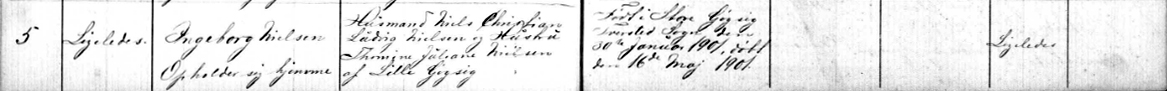 5
Ligeledes.
Ingeborg Nielsen
Opholder sig hjemme
Husmand Niels Christian
Ludvig Nielsen og Hustru
Thomine Juliane Nielsen
af Lille Gjøgsig
Født i Store Gjøgsig
Tversted Sogn den
30te Januar 1901, døbt
den 16de Maj 1901.
Ligeledes